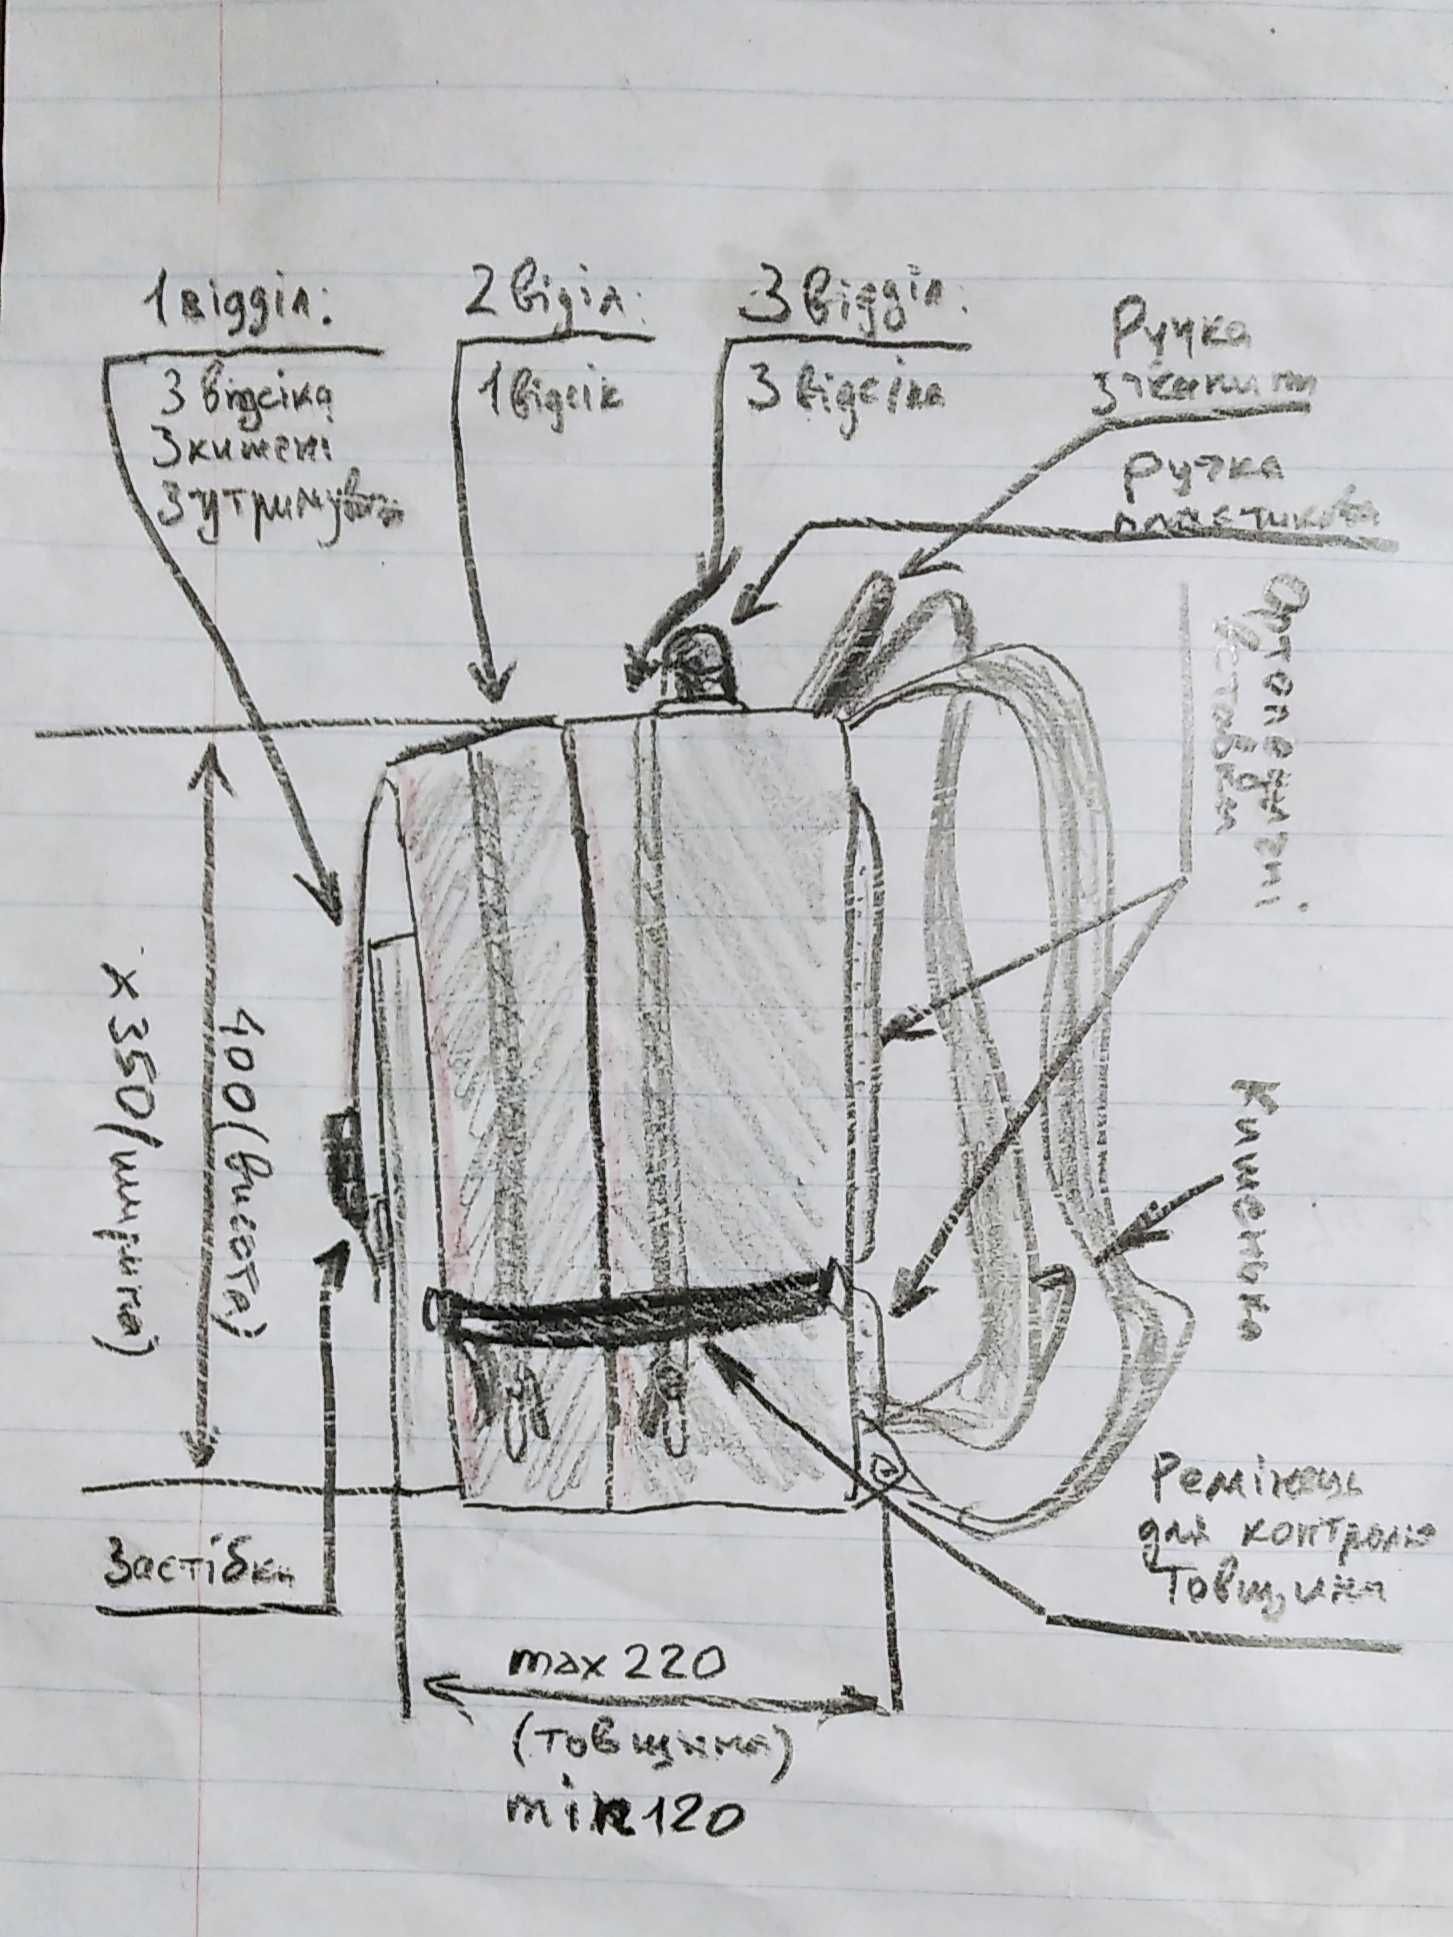 1 відділ:
3 відсіка
3 кишені
3 утримувачі
2 відділ:
1 відсік
3 відділ:
3 відсіка
Ручка
з тканини
ручка
пластикова
Ортопедичні
вставки
х 350 (ширина)
400 (висота)
Кишенька
Застібки
Ремінець
для контролю
товщини
max 220
(товщина)
min 120